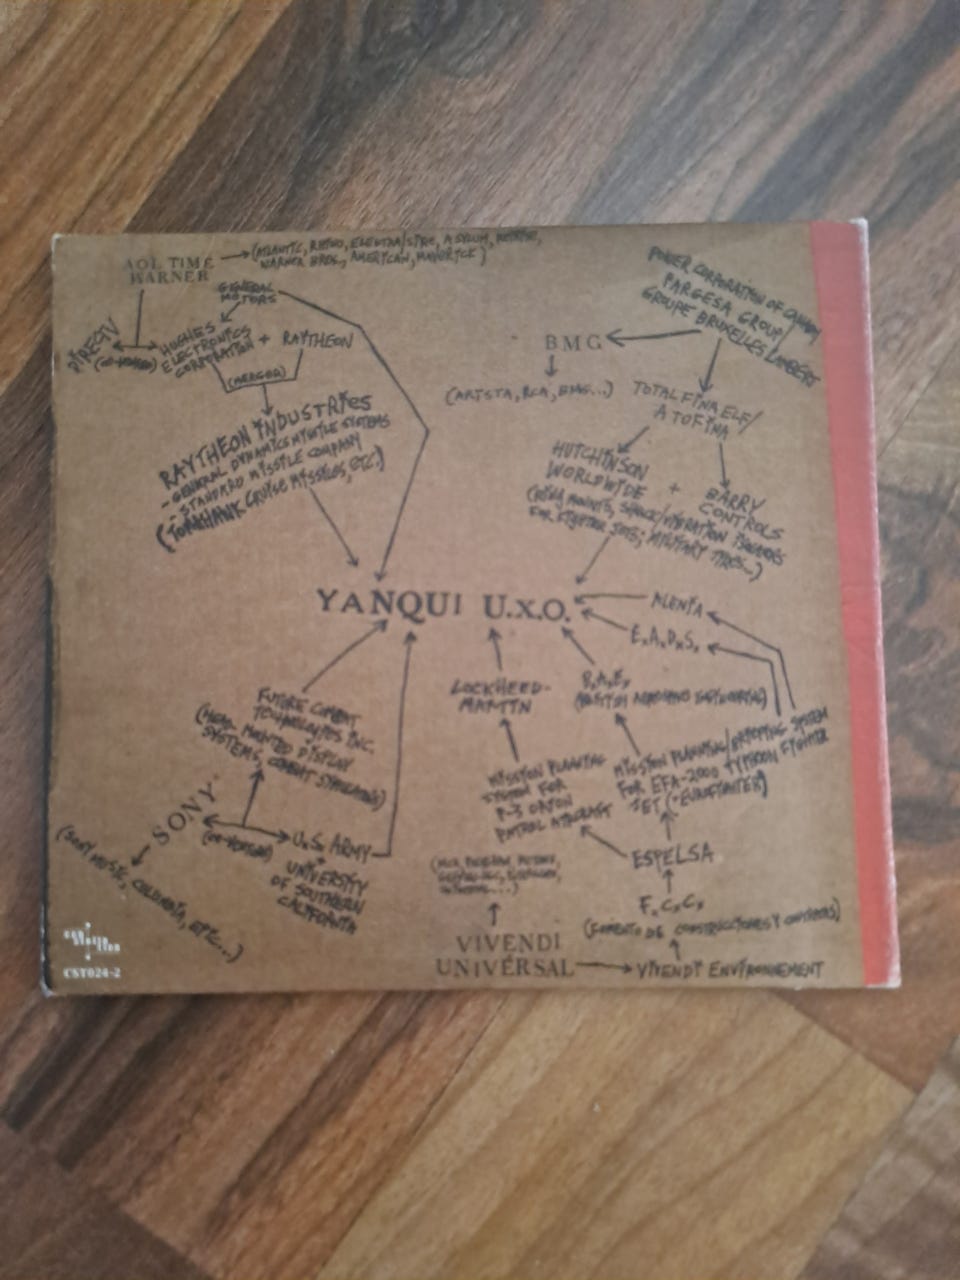 AOL TIME
WARNER
(ATLANTIC, RHINO, ELEKTRA/SIRE, ASYLUM,
WARNER BROS., AMERICAN, MAVERICK)
GENERAL
MOTORS
DIRECTV
(CO-OWNED)
HUGHES
ELECTRONICS
CORPORATION
+ RAYTHEON
(MERGER)
RAYTHEON INDUSTRIES
- GENERAL DYNAMICS MISSILE SYSTEMS
- STANDARD MISSILE COMPANY
(TOMAHAWK CRUISE MISSILES, ETC.)
POWER CORPORATION OF CANADA/
PARGESA GROUP/
GROUPE BRUXELLES LAMBERT
BMG
(ARISTA, RCA, BMG...)
TOTALFINAELF/
ATOFINA
HUTCHINSON
WORLDWIDE
+
BARRY
CONTROLS
MOUNTS, SHOCK/VIBRATION
FOR FIGHTER JETS; MILITARY TIRES...)
YANQUI U.X.O.
ALENIA
E.A.D.S.
FUTURE COMBAT
TECHNOLOGIES INC.
(HEAD-MOUNTED DISPLAY
SYSTEMS, COMBAT SIMULATION)
SONY
(SONY MUSIC, COLUMBIA, ETC...)
(CO-OWNED)
U.S. ARMY
UNIVERSITY
OF SOUTHERN
CALIFORNIA
LOCKHEED-
MARTIN
B.A.E.
MISSION PLANNING
SYSTEM FOR
P-3 ORION
PATROL AIRCRAFT
MISSION PLANNING/BRIEFING SYSTEM
FOR EFA-2000 TYPHOON FIGHTER
JET (-EUROFIGHTER)
ESPELSA
F.C.C.
(FOMENTO DE CONSTRUCCIONES Y CONTRATAS)
VIVENDI
UNIVERSAL
VIVENDI ENVIRONNEMENT
CST024-2